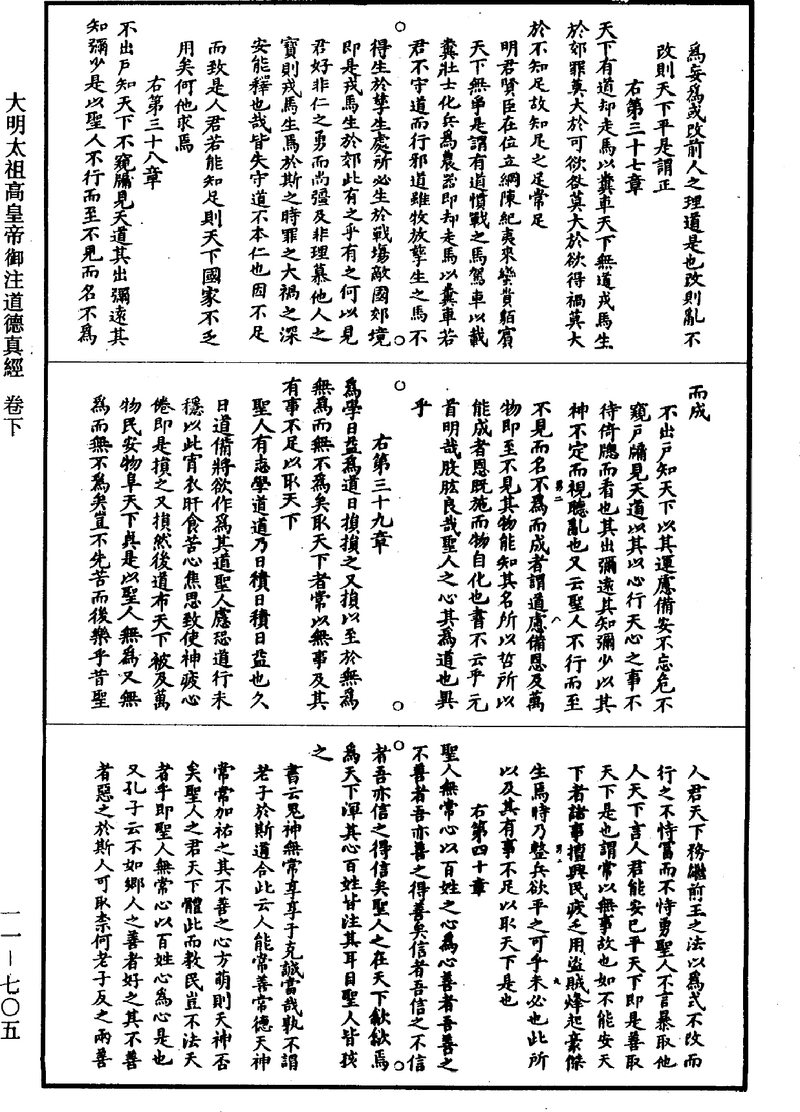 為妄為或改前人之理道是也改則亂不
改則天下平是謂正
右第三十七章
天下有道却走馬以糞車天下無道戎馬生
於郊罪莫大於可欲咎莫大於欲得禍莫大
於不知足故知足之足常足
明君賢臣在位立綱陳紀夷來蠻貴貊賓
天下無爭是謂有道憤戰之馬駕車以載
糞壯士化兵為農器即却走馬以糞車若
君不守道而行邪道雖牧放孳生之馬不
得生於孳生處所必生於戰場敵國郊境
即是戎馬生於郊此有之乎有之何以見
君好非仁之勇而尚彊及非理慕他人之
寶則戎馬生焉於斯之時罪之大禍之深
安能釋也哉皆失守道不本仁也因不足
而致是人君若能知足則天下國家不乏
用矣何他求焉
右第三十八章
不出戶知天下不窺牖見天道其出彌遠其
知彌少是以聖人不行而至不見而名不為
而成
不出戶知天下以其運慮備安不忘危不
窺戶牖見天道以其以心行天心之事不
待倚牕而看也其出彌遠其知彌少以其
神不定而視聽亂也又云聖人不行而至
不見而名不為而成者謂道慮備恩及萬
物即至不見其物能知其名所以哲所以
能成者恩既施而物自化也書不云乎元
首明哉股肱良哉聖人之心其為道也異
乎
右第三十九章
為學日益為道日損損之又損以至於無為
無為而無不為矣取天下者常以無事及其
有事不足以取天下
聖人有志學道道乃日積日積日益也久
日道備將欲作為其道聖人慮恐道行未
穩以此宵衣旰食苦心焦思致使神疲心
倦即是損之又損然後道布天下被及萬
物民安物阜天下貞是以聖人無為又無
為而無不為矣豈不先苦而後樂乎昔聖
人君天下務繼前王之法以為式不改而
行之不恃富而不恃勇聖人不言暴取他
人天下言人君能安已平天下即是善取
天下是也謂常以無事故也如不能安天
下者諸事擅興民疲乏用盜賊烽起豪傑
生焉時乃整兵欲平之可乎未必也此所
以及其有事不足以取天下是也
右第四十章
聖人無常心以百姓之心為心善者吾善之
不善者吾亦善之得善矣信者吾信之不信
者吾亦信之得信矣聖人之在天下歙歙焉
為天下渾其心百姓皆注其耳目聖人皆孩
之
書云鬼神無常享享于克誠當哉孰不謂
老子於斯道合此云人能常善常德天神
常常加祐之其不善之心方萌則天神否
矣聖人之君天下體此而教民豈不法天
者乎即聖人無常心以百姓心為心是也
又孔子云不如鄉人之善者好之其不善
者惡之於斯人可取奈何老子反之兩善
大明太祖高皇帝御注道德真經 卷下
一一－七〇五